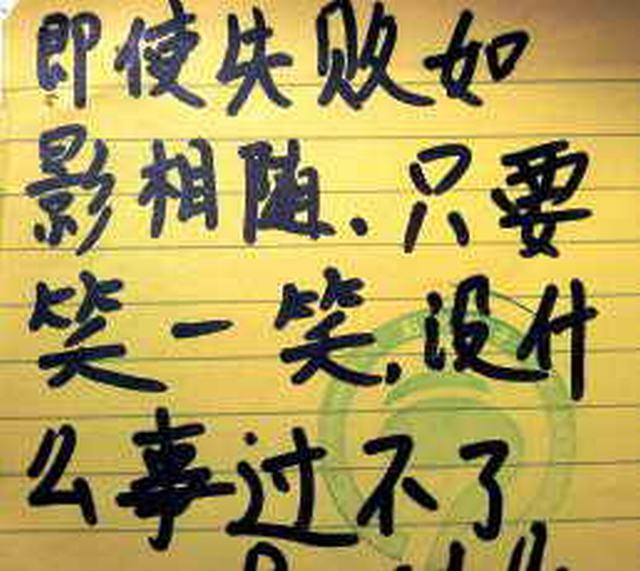 即使失败如
影相随、只要
笑一笑,没什
么事过不了